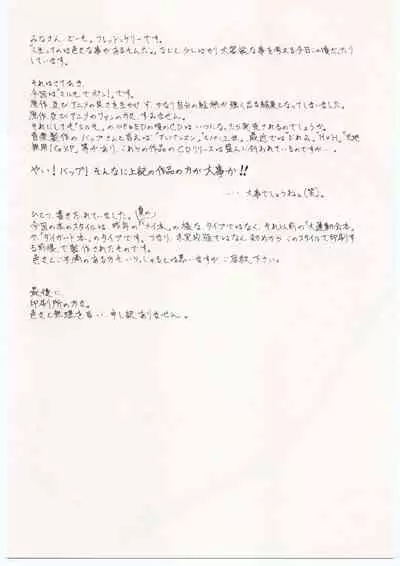 みなさん、どーも。フレッド・ケリーです。
人生ってのは色々な事があるもんだ。などと、少しばかり大袈裟な事を考える今日この頃だったり
しています。
それはさておき、
今回は「ミルモでポン！」です。
原作及びアニメの良さを生かせず、かなり自分の絵柄が強く出る結果となってしまいました。
原作及びアニメのファンの方々、すみません。
それにしても「ミルモ」のOPやEDの曲のCDはいつになったら発売されるのでしょうか。
音楽製作のバップさんと言えば「アンパンマン」「ルパン三世」、最近では
無用！GXP」等があり、これらの作品のCDリリースは盛んに行われているのですが…。
やい！バップ！そんなに上記の作品の方が大事か!!
…大事でしょうねェ(笑)。
ひとつ、書き忘れていました。
今回の本のスタイルは、昨年の
や「ダイガード本」のタイプです。つまり、
前提で製作されたものです。
色々とご不満のある方もいらっしゃるとは思いますが、ご容赦下さい。
最後に、
印刷所の方々。
色々と無理を言い、申し訳ありません。